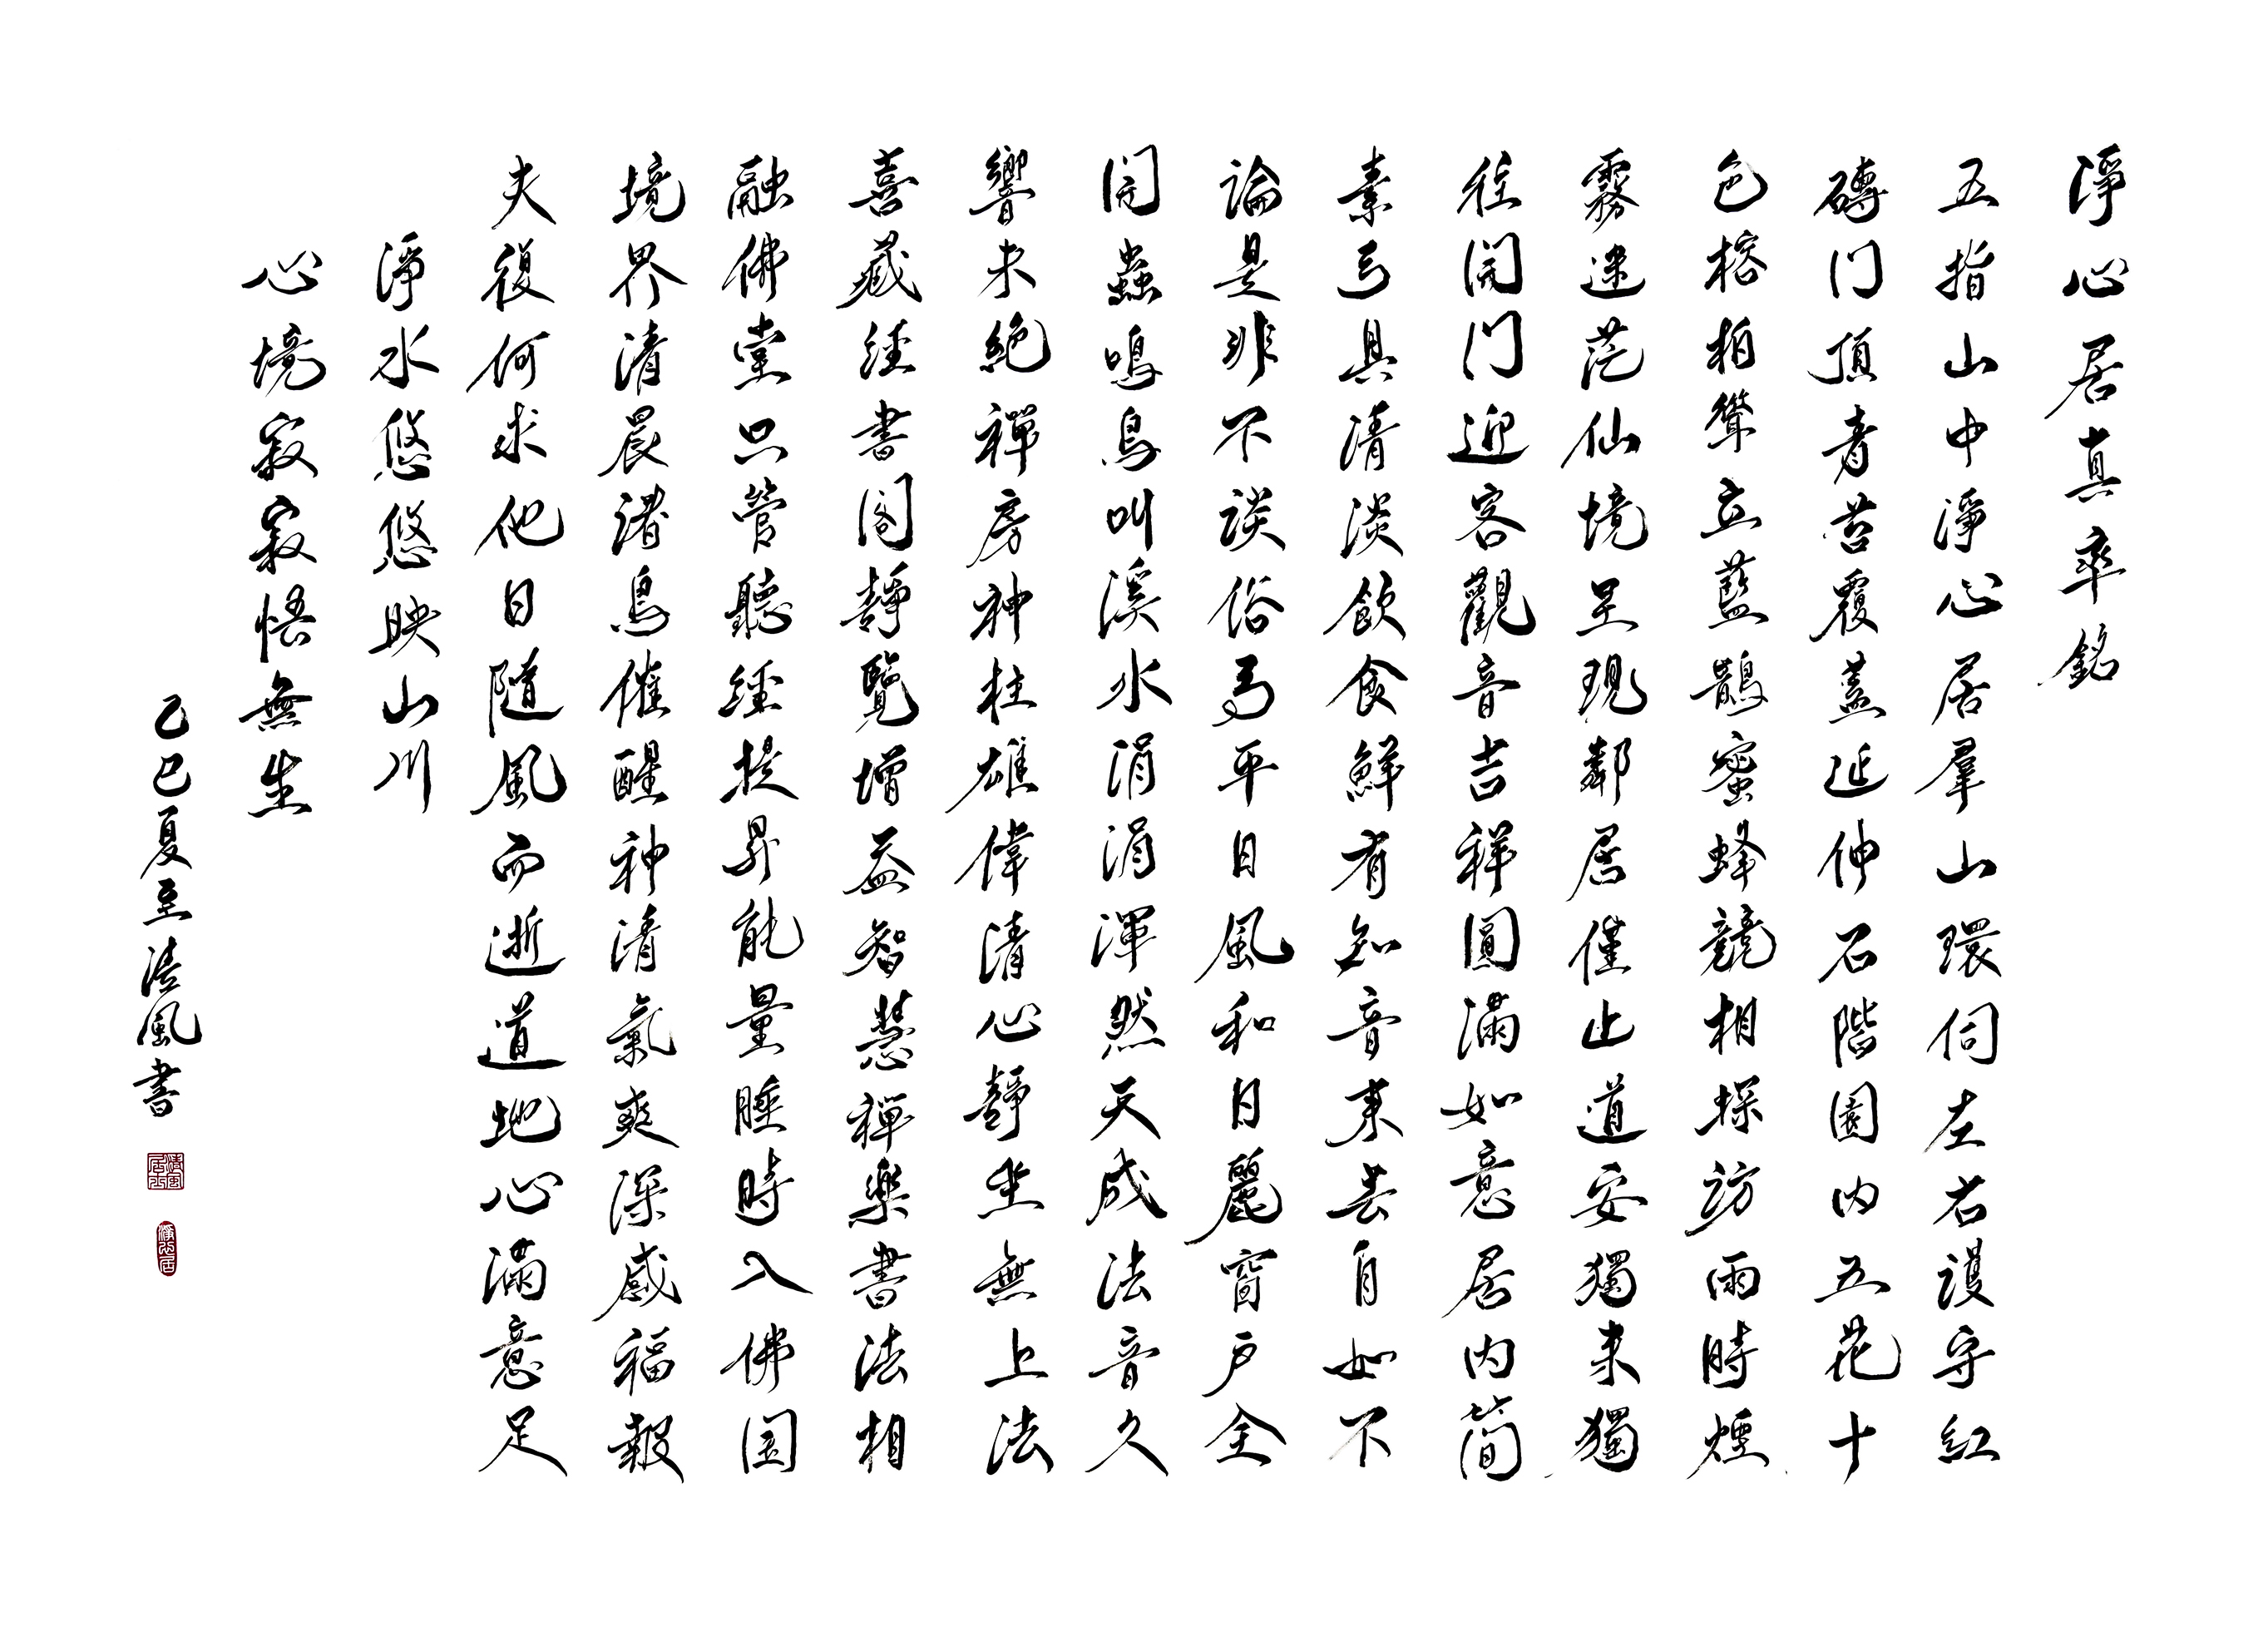 淨心居真率銘
五指山中淨心居羣山環伺左右護守紅
磚門頂青苔覆蓋延伸石階園內五花十
色榕柏聳立藍鵲蜜蜂競相探訪雨時煙
霧迷茫仙境呈現鄰居僅止道安獨來獨
往開門迎客觀音吉祥圓滿如意居內簡
素弓具清淡飲食鮮有知音來去自如不
論是非不談俗弓平日風和日麗窗戶全
開蟲鳴鳥叫溪水涓涓渾然天成法音久
響未絕禪房神柱雄偉清心靜坐無上法
喜藏經書閣靜覽增益智慧禪樂書法相
融佛堂只管聽經提昇能量睡時入佛国
境界清晨渚鳥催醒神清氣爽深感福報
夫復何求他日隨風而逝道地心滿意足
淨水悠悠映山川
心境寂寂悟無生
乙巳夏至清風書
清風居士
淨心居